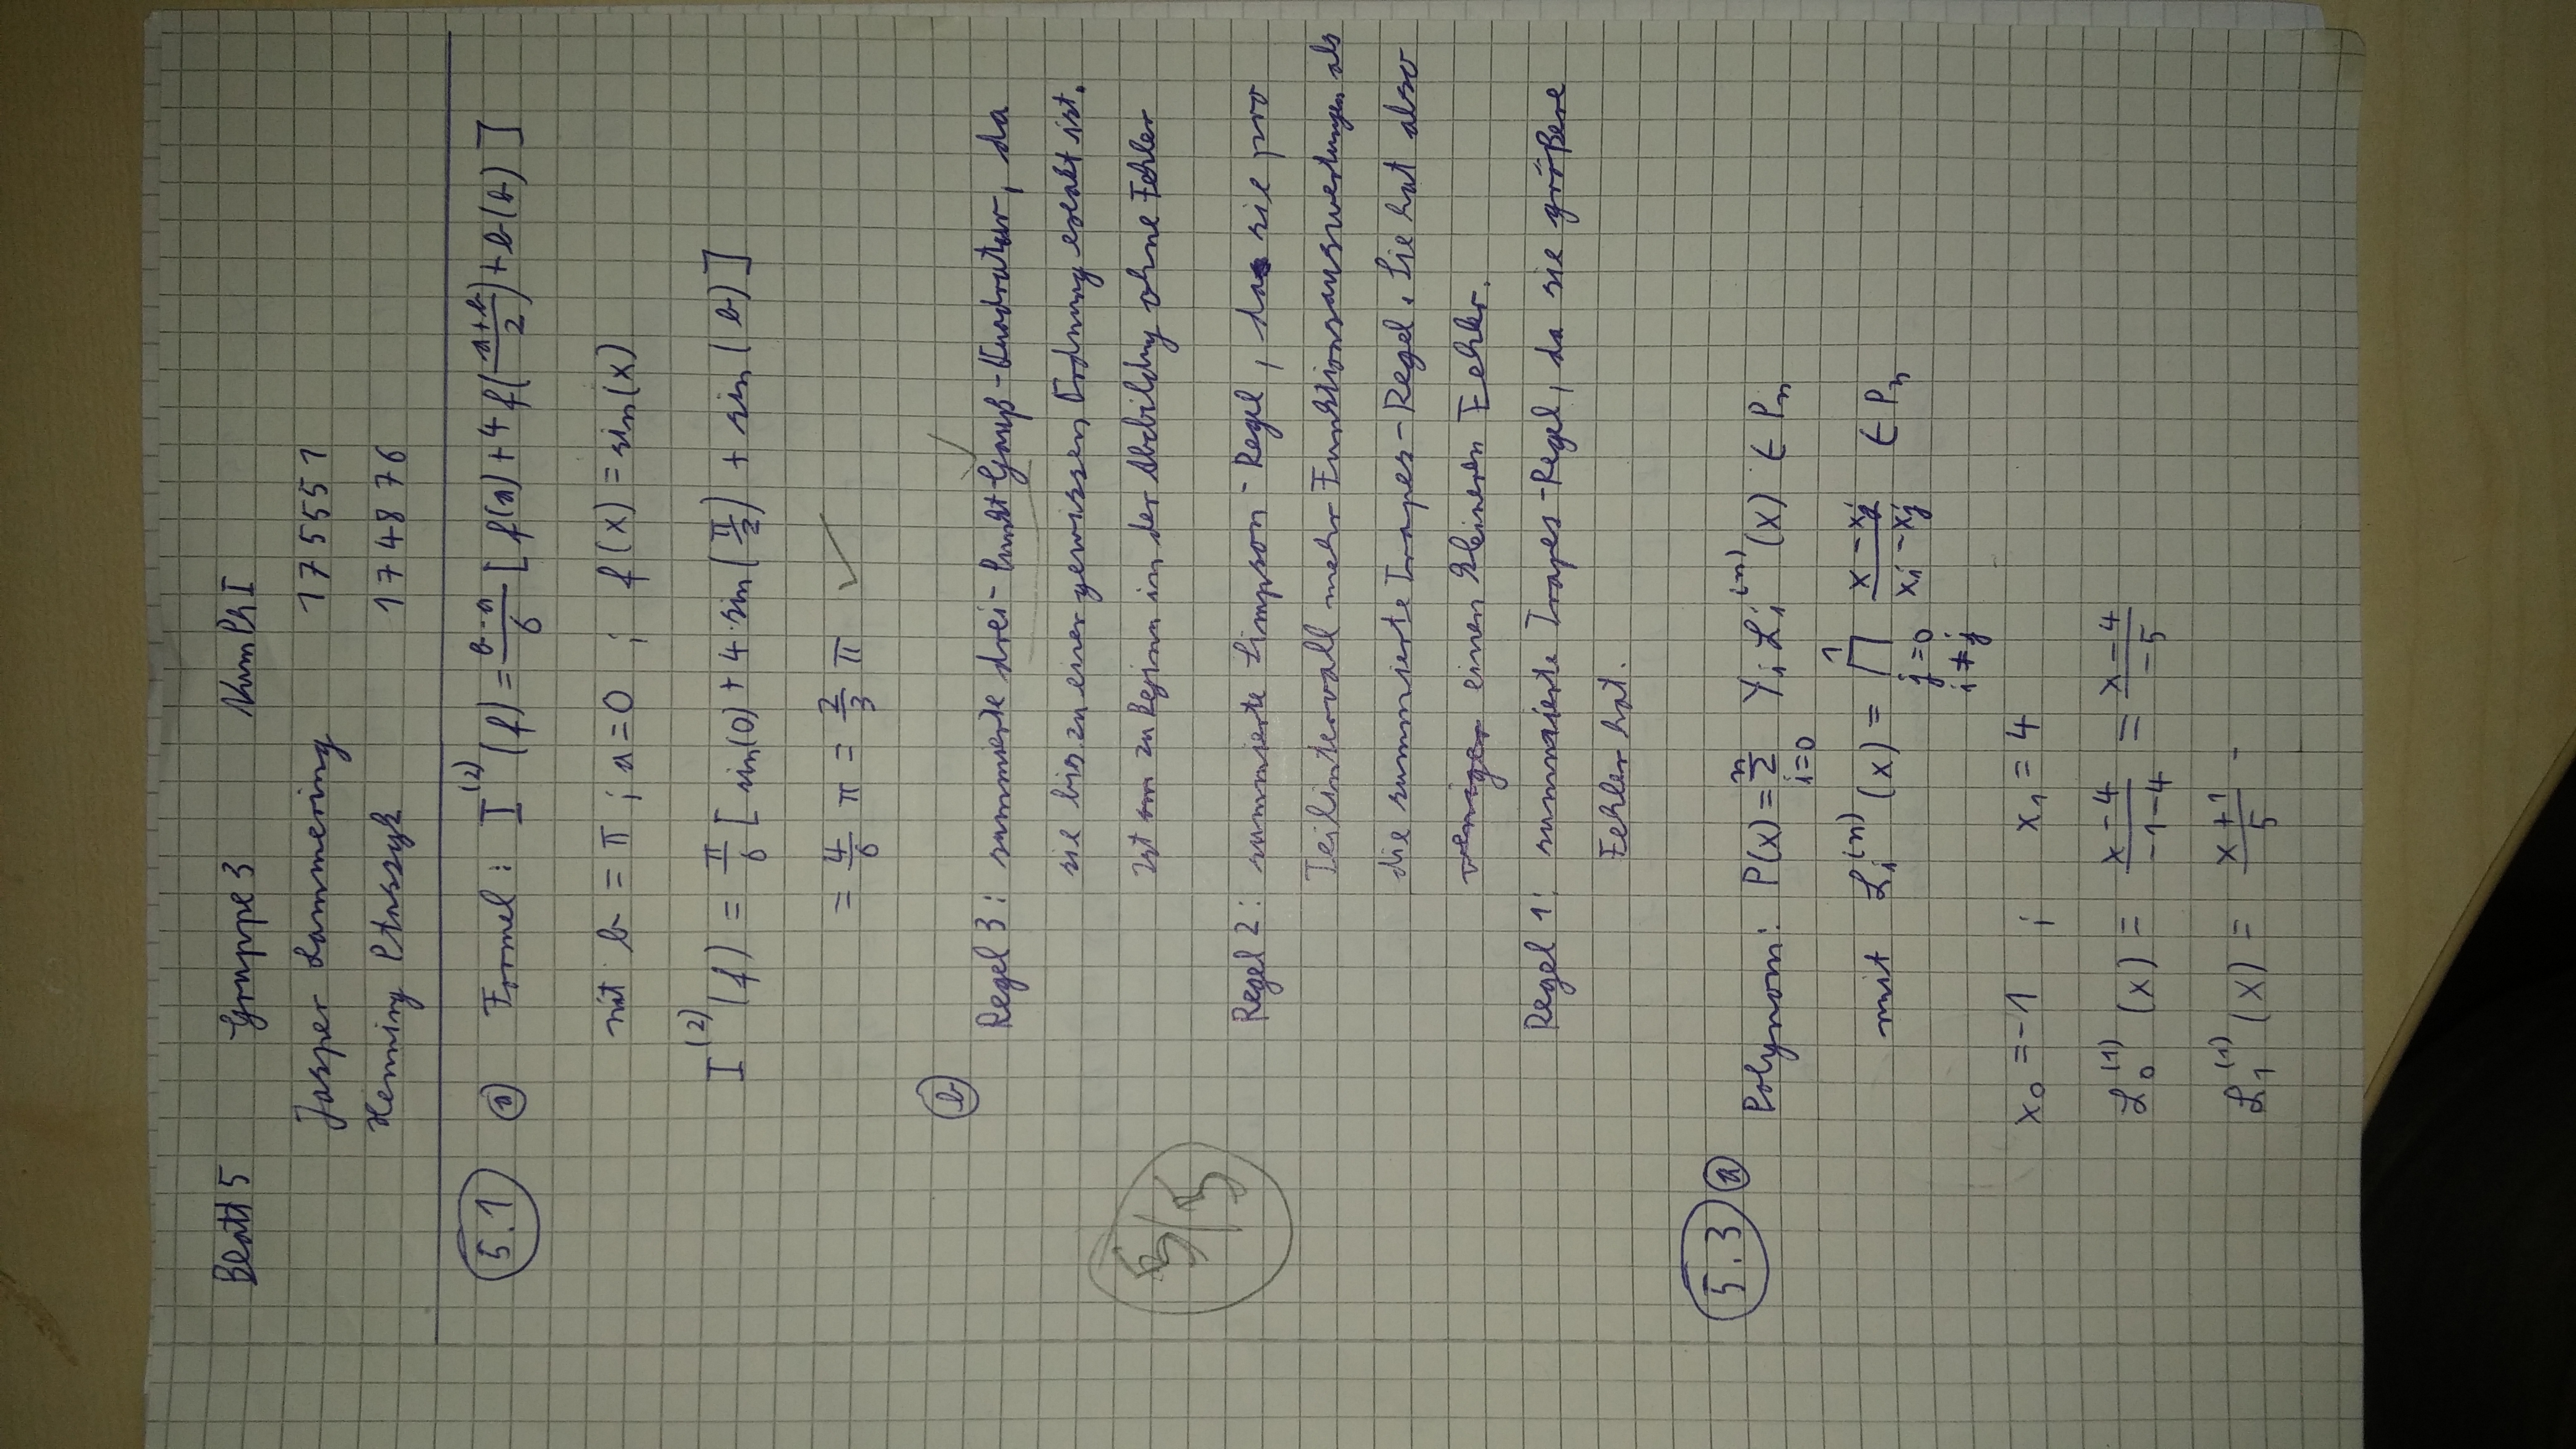 Blatt 5 Gruppe 3 NumPh I
Jasper Lammering 175551
Henning Ptaszyk 174876
5.1 a) Formel: I^(2)(f) = (b-a)/6 [f(a) + 4 f((a+b)/2) + b(b)]
mit b = π ; a = 0 ; f(x) = sin(x)
I^(2)(f) = π/6 [sin(0) + 4·sin(π/2) + sin(b)]
= 4/6 π = 2/3 π ✓
b)
Regel 3: summierte drei-Punkt-Gauß-Quadratur, da ✓
sie bis zu einer gewissen Ordnung exakt ist.
Ist zu Beginn in der Abbildung ohne Fehler
5/5
Regel 2: summierte Simpson-Regel, da sie pro
Teilintervall mehr Funktionsauswertungen als
die summierte Trapes-Regel. Sie hat also
weniger einen kleineren Fehler.
Regel 1: summierte Trapes-Regel, da sie größere
Fehler hat.
5.3 a)
Polynom: P(x) = Σ_{i=0}^{n} Y_i L_i^(n)(x) ∈ P_n
mit L_i^(n)(x) = Π_{j=0, i≠j}^{1} (x - x_j)/(x_i - x_j) ∈ P_n
x_0 = -1 ; x_1 = 4
L_0^(1)(x) = (x-4)/(-1-4) = (x-4)/(-5)
L_1^(1)(x) = (x+1)/5 -